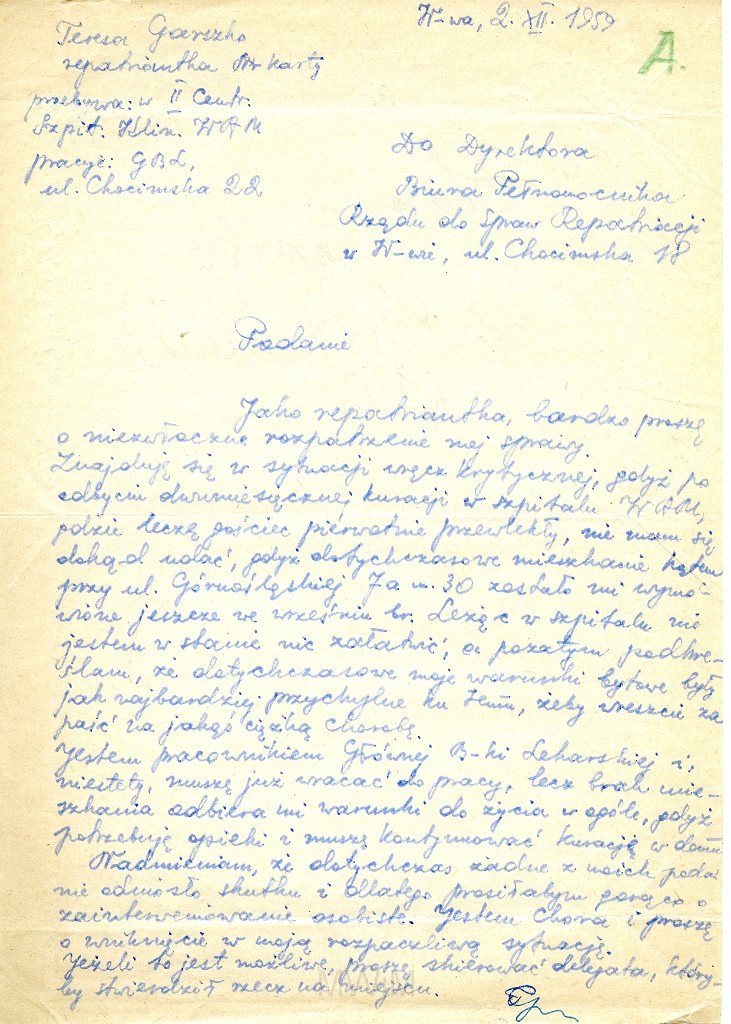 W-wa, 2. XII. 1959
A.
Teresa Garszko
repatriantka Nr karty
przebywa: w II Centr.
Szpit. Klin. WAM
pracuje: GBL,
ul. Chocimska 22
Do Dyrektora
Biura Pełnomocnika
Rządu do Spraw Repatriacji
w W-wie, ul. Chocimska 18
Podanie
Jako repatriantka, bardzo proszę
o niezwłoczne rozpatrzenie mej sprawy.
Znajduję się w sytuacji wręcz krytycznej, gdyż po
odbyciu dwumiesięcznej kuracji w szpitalu WAM,
gdzie leczę gościec pierwotnie przewlekły, nie mam się
dokąd udać, gdyż dotychczasowe mieszkanie kątem
przy ul. Górnośląskiej 7a m. 30 zostało mi wymó-
wione jeszcze we wrześniu br. Leżąc w szpitalu nie
jestem w stanie nic załatwić, a pozatym podkre-
ślam, że dotychczasowe moje warunki bytowe były
jak najbardziej przychylne ku temu, żeby wreszcie za
paść na jakąś ciężką chorobę.
Jestem pracownikiem Głównej B-ki Lekarskiej i,
niestety, muszę już wracać do pracy, lecz brak mie-
szkania odbiera mi warunki do życia w ogóle, gdyż
potrzebuję opieki i muszę kontynuować kurację w domu
Nadmieniam, że dotychczas żadne z moich podań
nie odniosło skutku i dlatego prosiłabym gorąco o
zainterweniowanie osobiste. Jestem chora i proszę
o wniknięcie w moją rozpaczliwą sytuację.
Jeżeli to jest możliwe, proszę skierować delegata, który-
by stwierdził rzecz na miejscu.